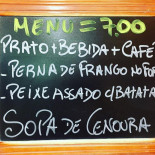 MENU = 7.00
PRATO + BEBIDA + CAFÉ
- PERNA DE FRANGO NO FOR
- PEIXE ASSADO C/BATATA
SOPA DE CENOURA